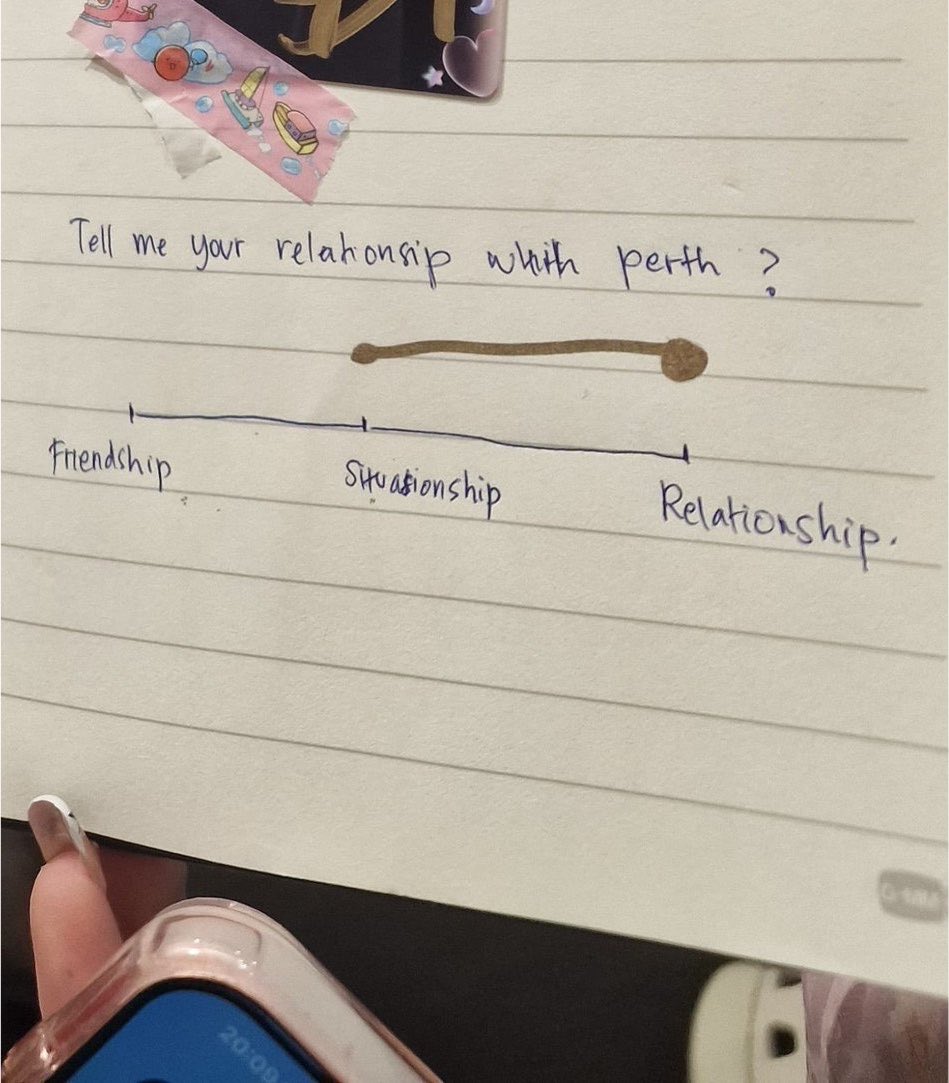 Tell me your relationsip whith perth ?
Friendship
Situationship
Relationship.
20:09